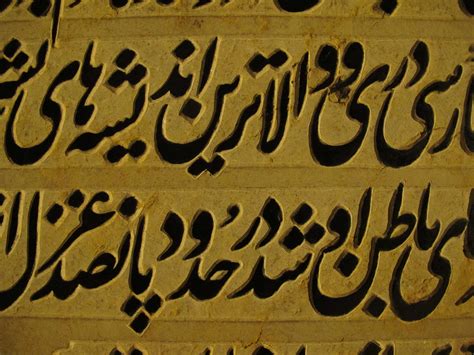 ارسی دری و والاترین اندیشه های بشـ
ـای باطن او شد در حدود پانصد غزل ا